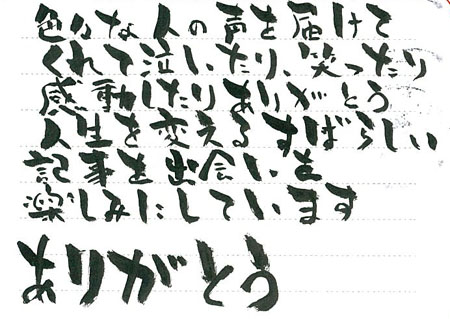 色々な人の声を届けて
くれて泣いたり、笑ったり
感動したりありがとう
人生を変えるすばらしい
記事を出会いを
楽しみにしています
ありがとう